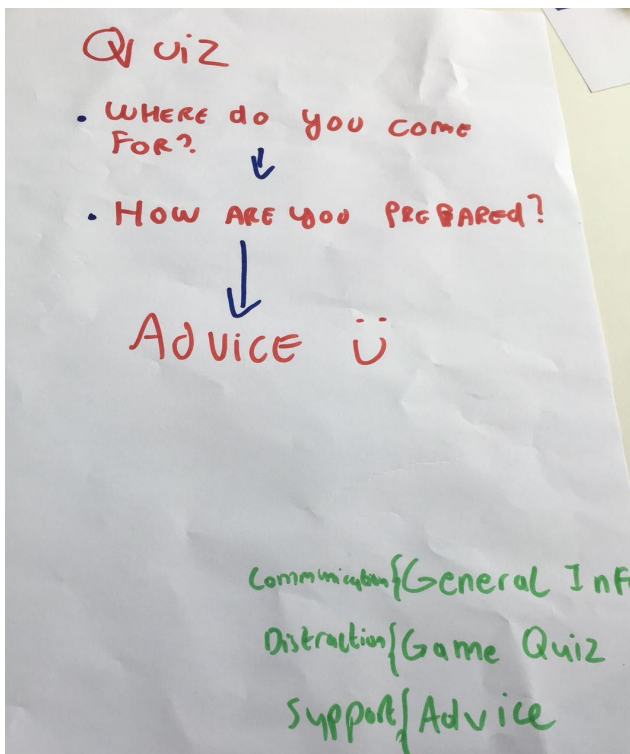 Quiz
• WHERE do you come
FOR?
• HOW ARE you PREPARED?
ADVICE
Communication{General Inf
Distraction{Game Quiz
Support{Advice